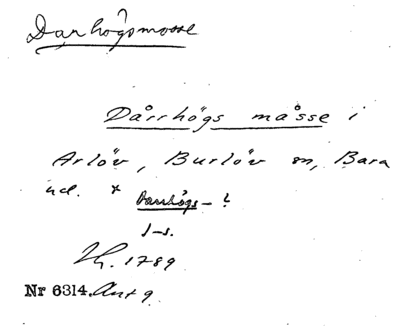 Darhögsmosse
Dårrhögs måsse i
Arlöv, Burlöv sn, Bara
hd. * Darrhögs - ?
J-s.
Th. 1789
Nr 6314. Ant 9.